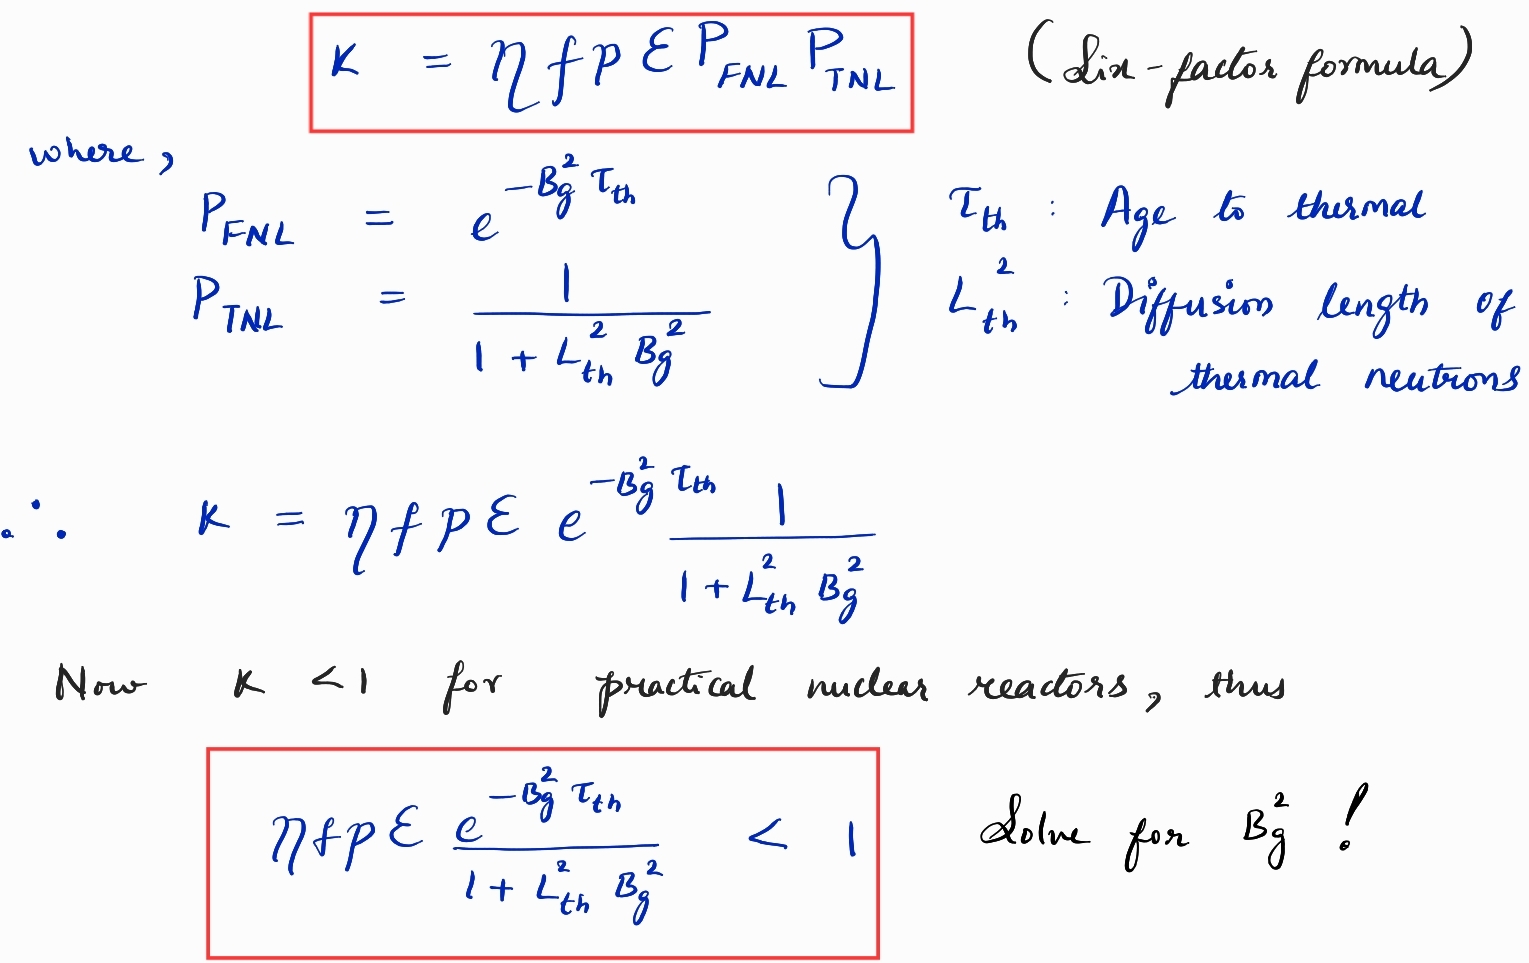 K = η f p ε P_FNL P_TNL (Six-factor formula)
where,
P_FNL = e^(-B_g^2 τ_th) } τ_th : Age to thermal
P_TNL = 1 / (1 + L_th^2 B_g^2) L_th^2 : Diffusion length of
thermal neutrons
∴ K = η f p ε e^(-B_g^2 τ_th) 1 / (1 + L_th^2 B_g^2)
Now K < 1 for practical nuclear reactors, thus
η f p ε e^(-B_g^2 τ_th) / (1 + L_th^2 B_g^2) < 1 Solve for B_g^2 !